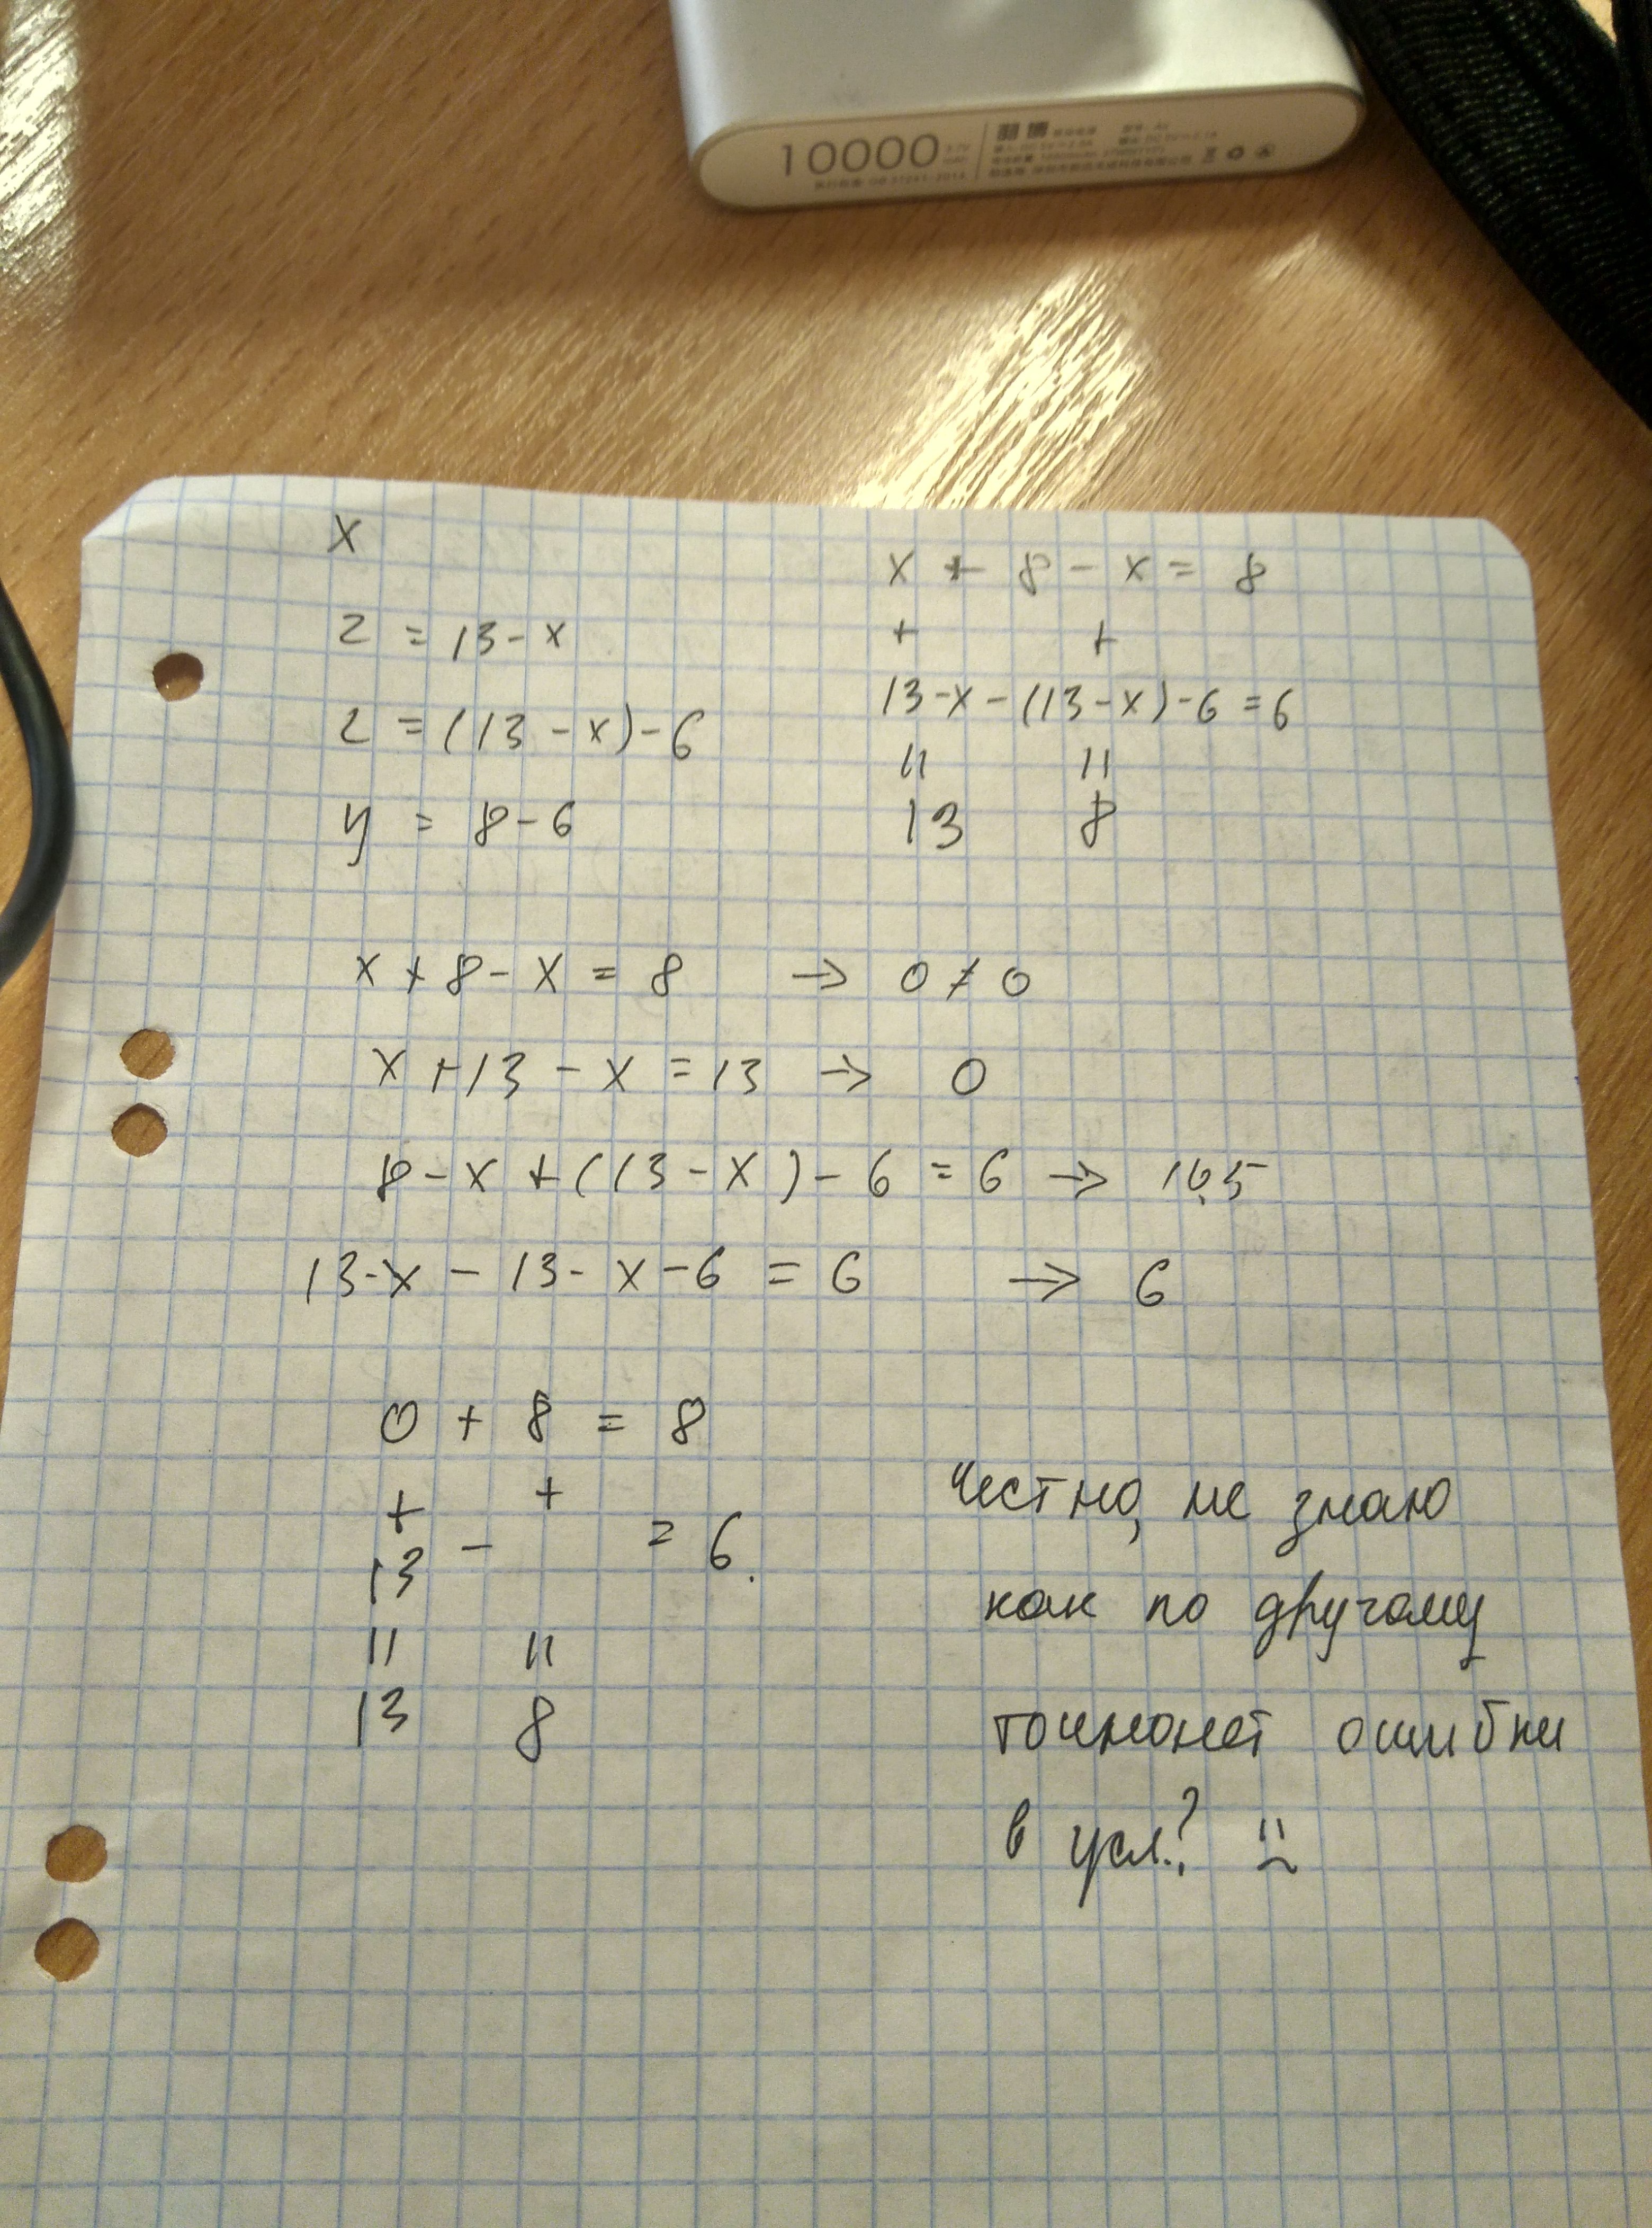 10000
x
z = 13 - x
z = (13 - x) - 6
y = 8 - 6
x + 8 - x = 8
+ +
13 - x - (13 - x) - 6 = 6
11 11
13 8
x + 8 - x = 8 → 0 ≠ 0
x + 13 - x = 13 → 0
8 - x + (13 - x) - 6 = 6 → 10,5
13 - x - 13 - x - 6 = 6 → 6
0 + 8 = 8
+ +
13 - = 6.
11 11
13 8
Честно, не знаю
как по другому
ошибки
в усл.?